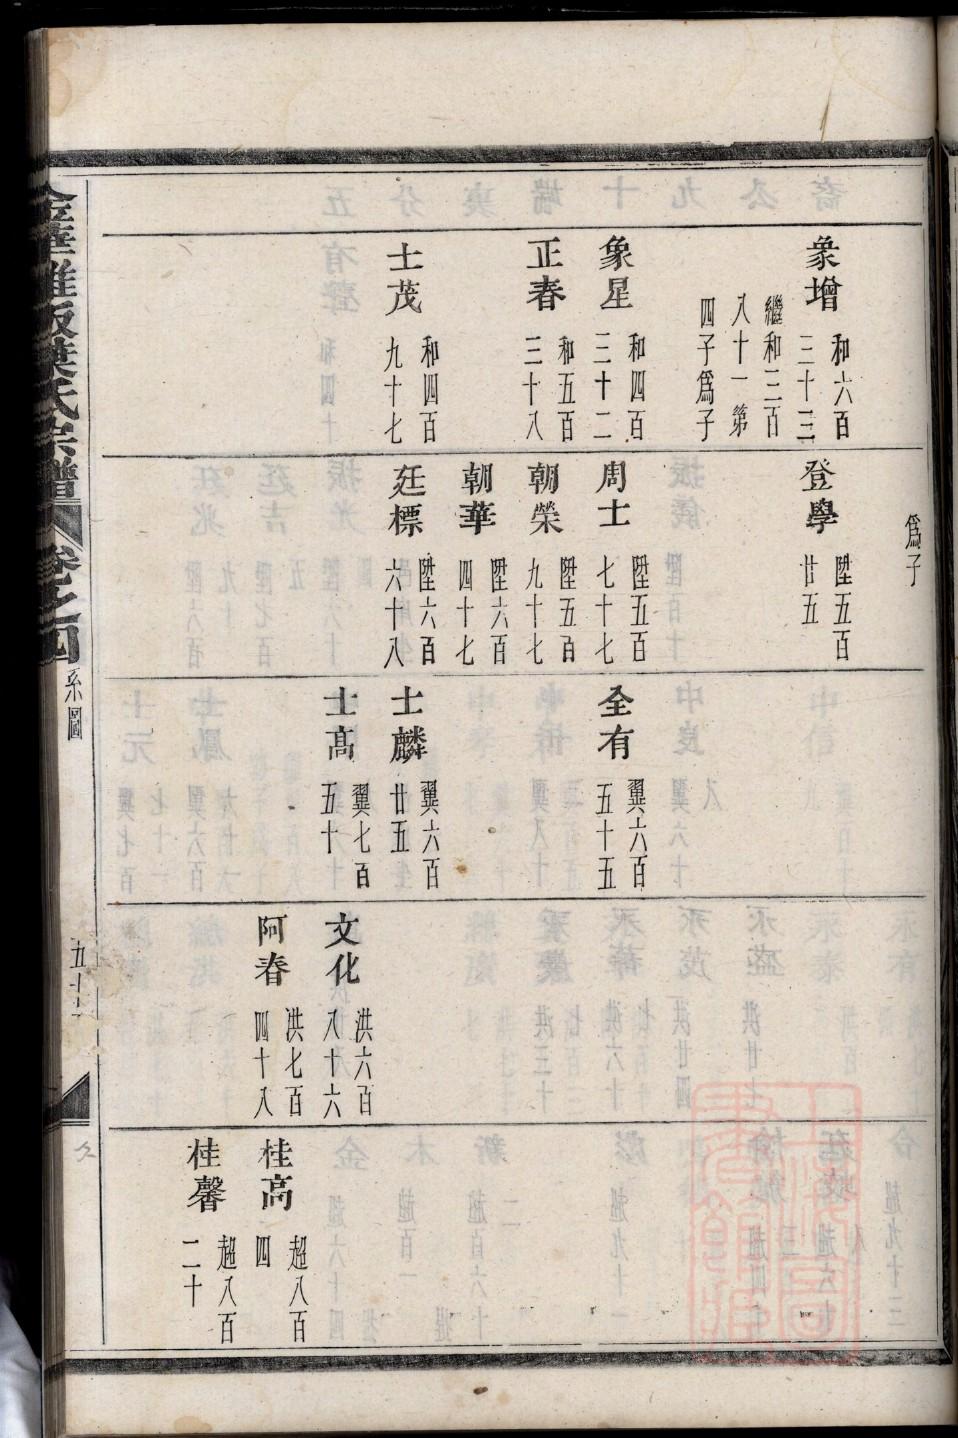 象增
和六百
三十三
繼和三百
八十一第
四子爲子
象星
和四百
三十二
正春
和五百
三十八
士茂
和四百
九十七
爲子
登學
陞五百
廿五
周士
陞五百
七十七
朝榮
陞五百
九十七
朝華
陞六百
四十七
廷標
陞六百
六十八
全有
翼六百
五十五
士麟
翼六百
廿五
士高
翼七百
五十
文化
洪六百
八十六
阿春
洪七百
四十八
桂高
超八百
四
桂馨
超八百
二十
葉氏宗譜
卷之四
系圖